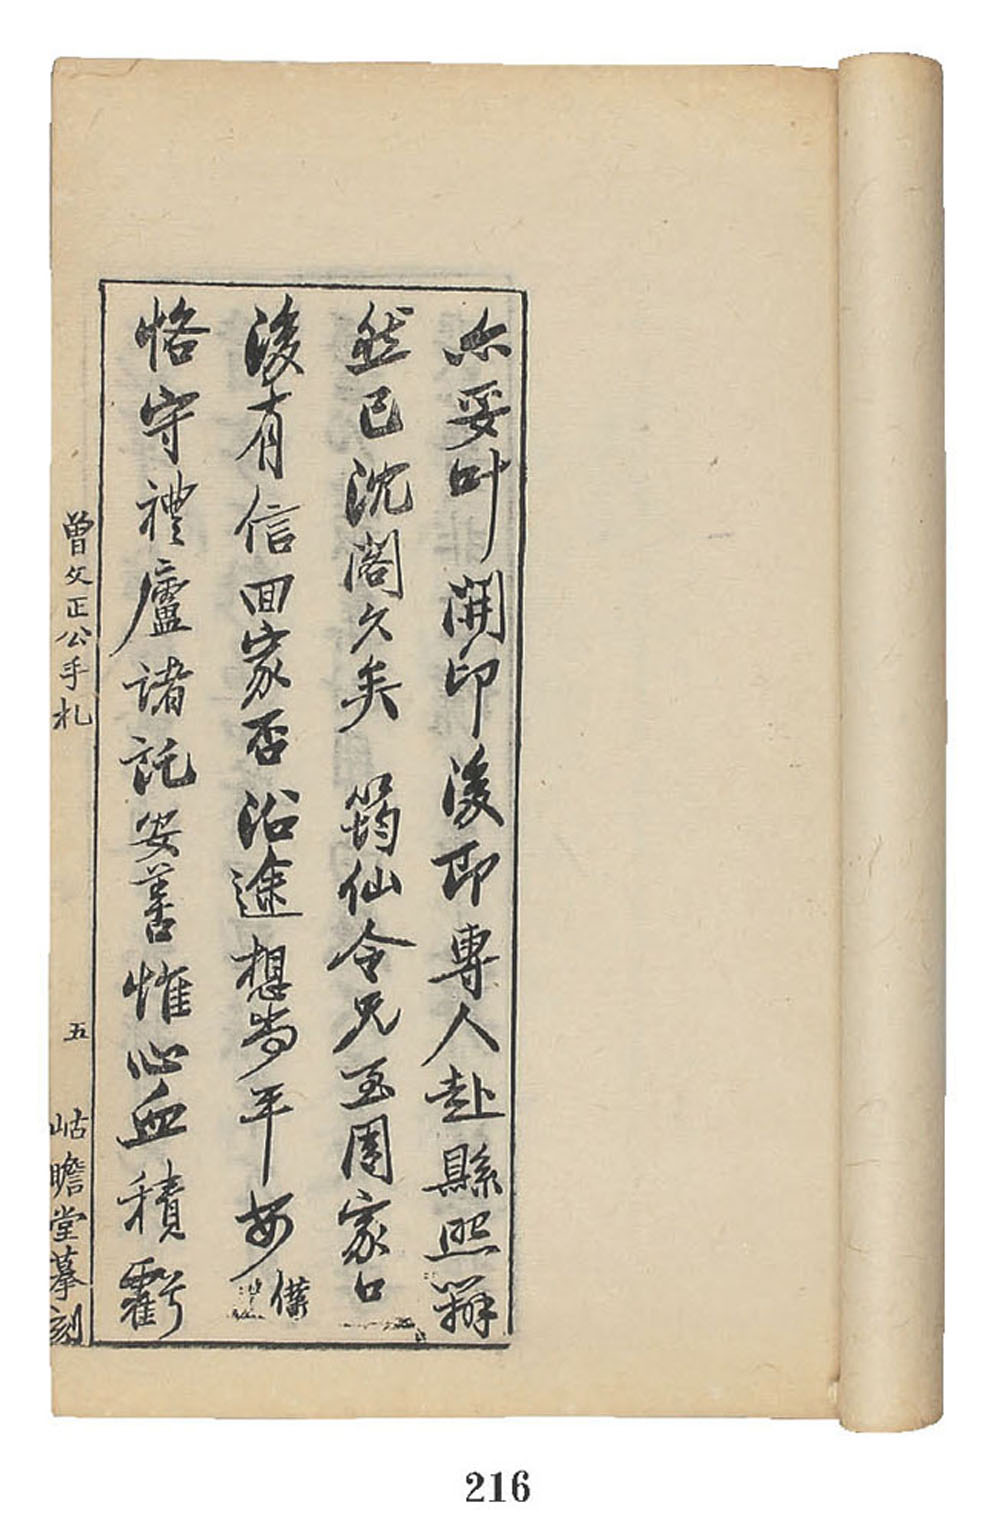 亦妥叶開印後即專人赴縣照辦
然已沈閣久矣 筠仙令兄至周家口
後有信回家否沿途想尚平安僕
恪守禮廬諸託安善惟心血積虧
曾文正公手札
五
岵瞻堂摹刻
216